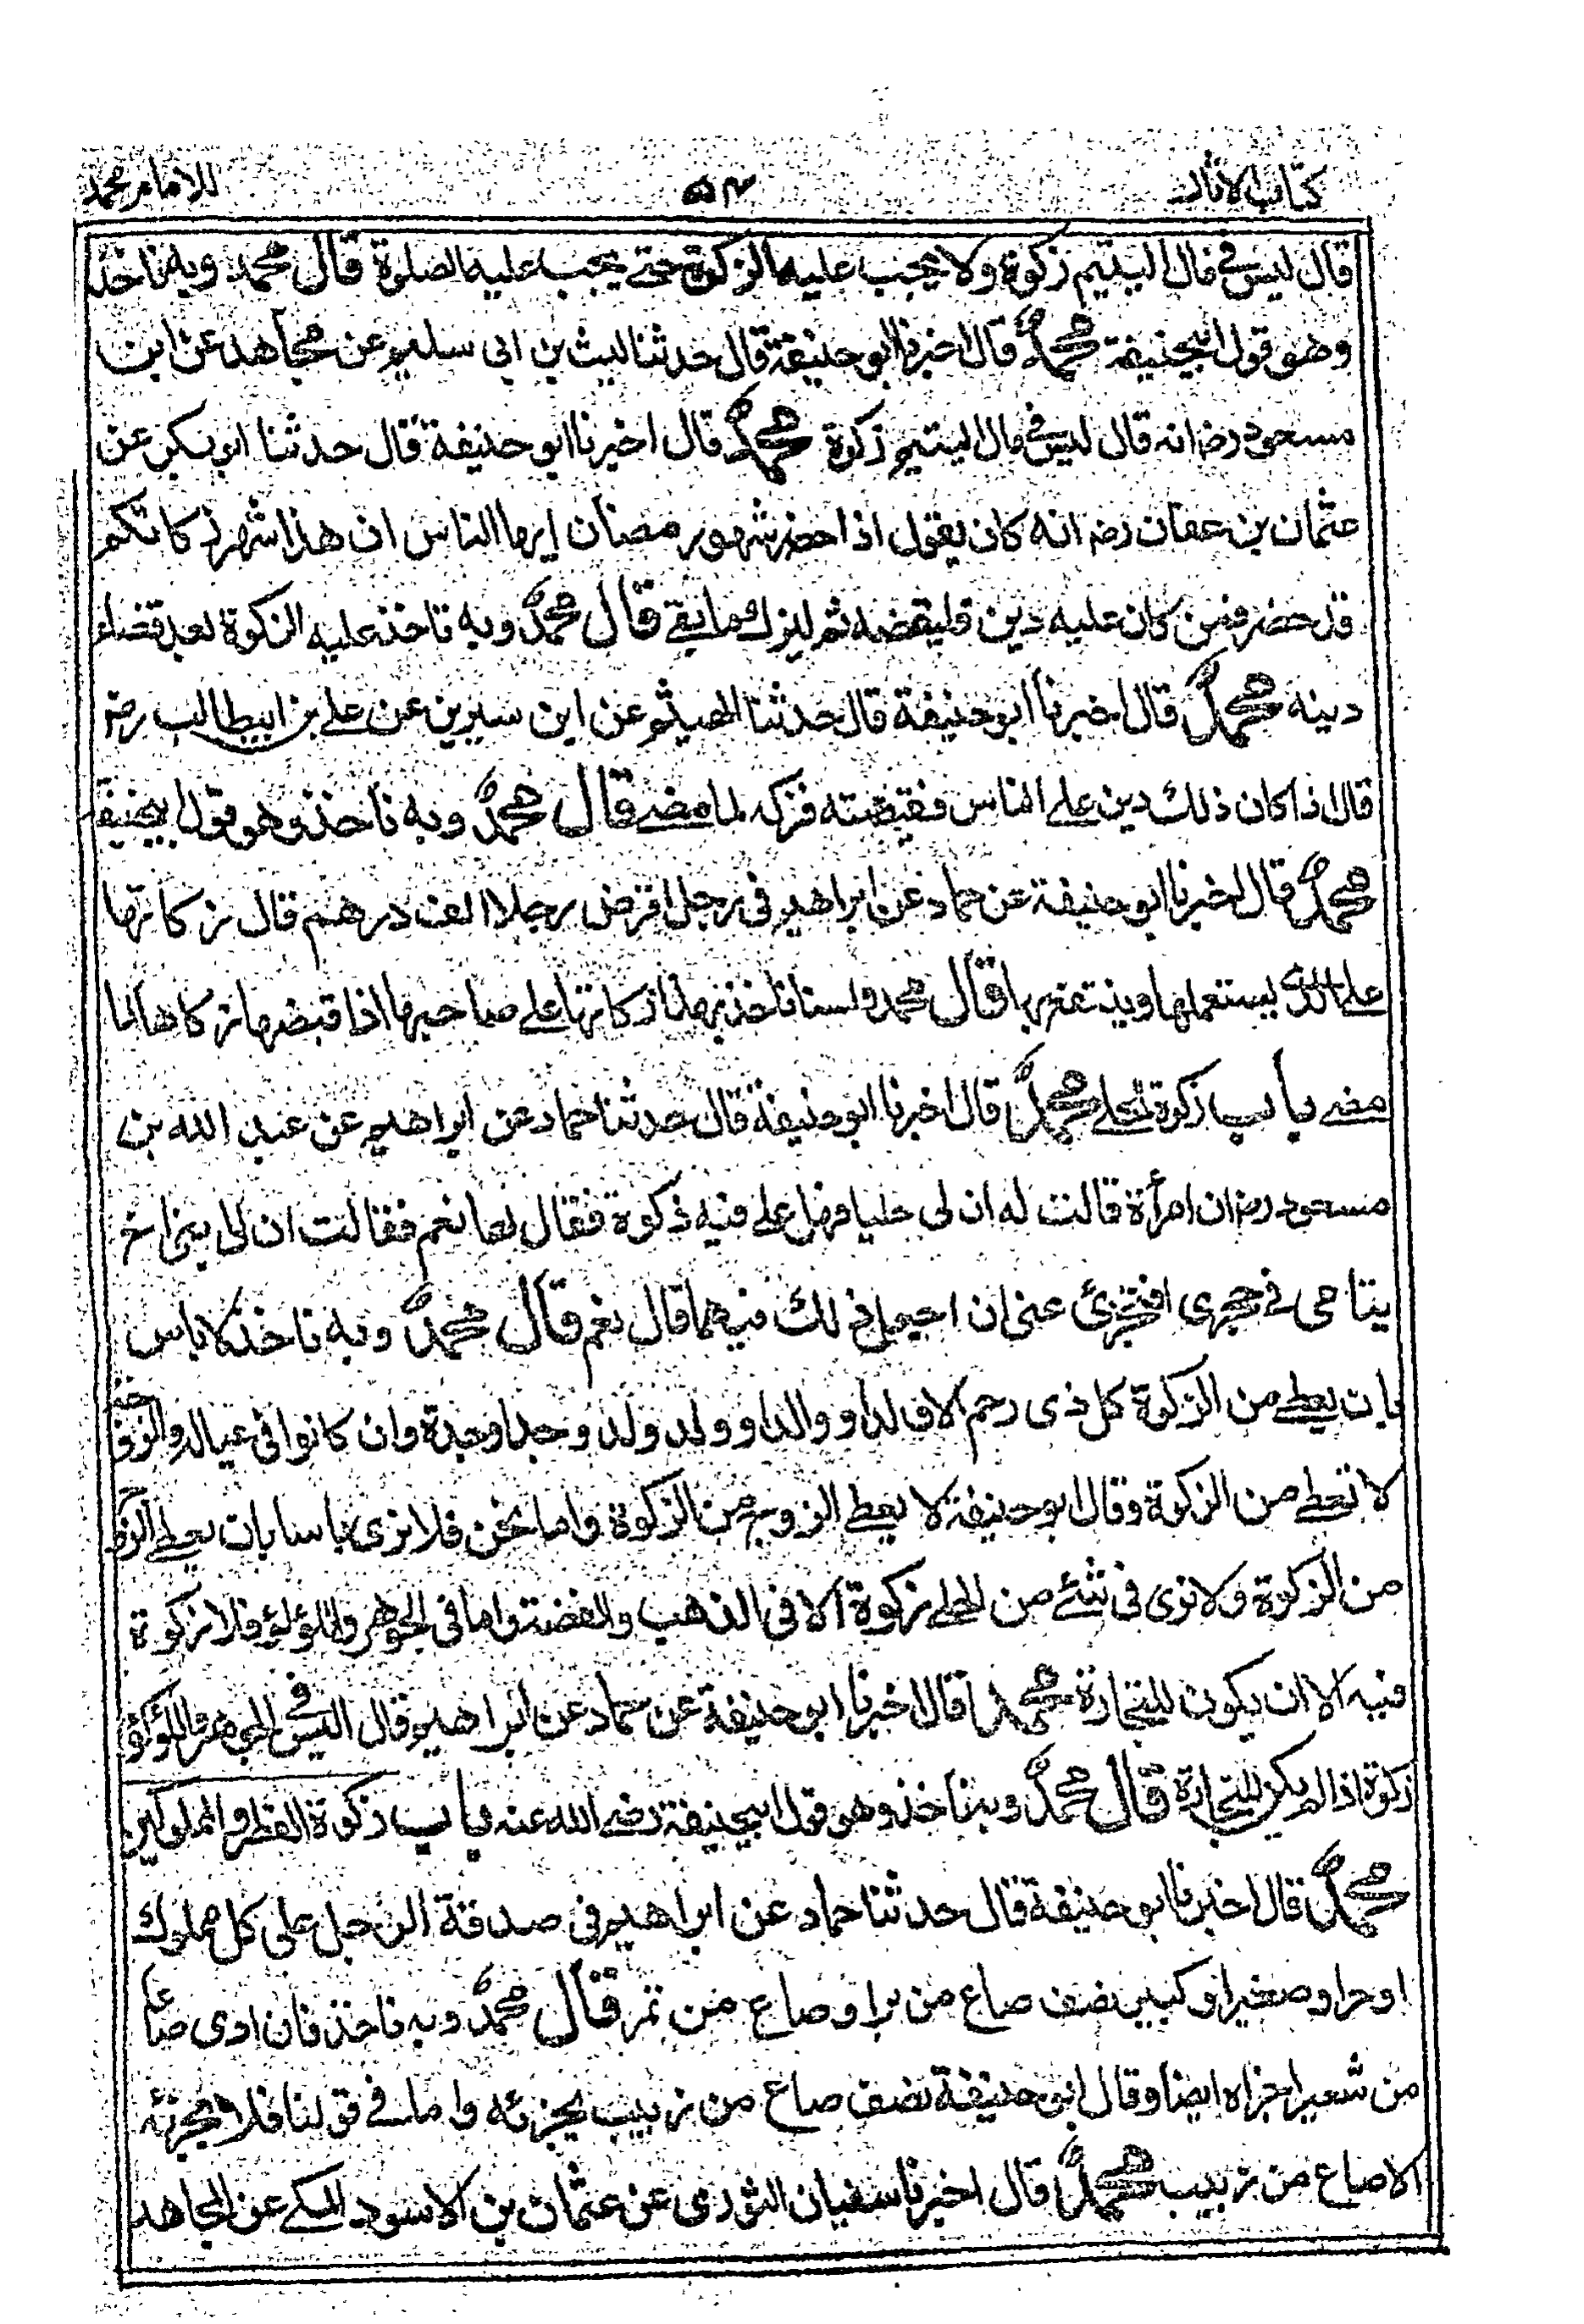 كتاب الاثار ۵۴ للامام محمد
قال ليس في مال اليتيم زكوة ولا يجب عليه الزكوة حتے يجب عليه الصلوة قال محمد وبه ناخذ
وهو قول ابيحنيفة محمد قال اخبرنا ابو حنيفة قال حدثنا ليث بن ابى سليم عن مجاهد عن ابن
مسعود رضـ انه قال ليس في مال اليتيم زكوة محمد قال اخبرنا ابو حنيفة قال حدثنا ابو بكر عن
عثمان بن عفان رضـ انه كان يقول اذا حضر شهر رمضان ايها الناس ان هذا شهر زكاتكم
قد حضر فمن كان عليه دين فليقضه ثم ليزك ما بقے قال محمد وبه ناخذ عليه الزكوة بعد قضاء
دينه محمد قال اخبرنا ابو حنيفة قال حدثنا الهيثم عن ابن سيرين عن علے بن ابيطالب رضـ
قال اذا كان ذلك دين علے الناس فقبضته فزكه لما مضے قال محمد وبه ناخذ وهو قول ابيحنيفة
محمد قال اخبرنا ابو حنيفة عن حماد عن ابراهيم فى رجل اقرض رجلا الف درهم قال زكاتها
علے الذى يستعملها وينتفع بها قال محمد ولسنا ناخذ بهذا زكاتها علے صاحبها اذا قبضها زكاها لما
مضے باب زكوة الحلے محمد قال اخبرنا ابو حنيفة قال حدثنا حماد عن ابراهيم عن عبد الله بن
مسعود رضـ ان امرأة قالت له ان لى حليا فهل على فيه زكوة فقال لها نعم فقالت ان لى بنى اخ
يتامى فے حجرى افتجزئ عنى ان اجعل ذلك فيهما قال نعم قال محمد وبه ناخذ لا باس
بان يعطے من الزكوة كل ذى رحم الا ولدا و والدا و ولد ولد وجدا وجدة وان كانوا فى عياله والزوجة
لا تعطے من الزكوة وقال ابو حنيفة لا يعطے الزوج من الزكوة واما نحن فلا نرى باسا بان يعطے الزوج
من الزكوة ولا نرى فى شئے من الحلے زكوة الا فى الذهب والفضة واما فى الجوهر واللؤلؤ فلا زكوة
فيه الا ان يكون للتجارة محمد قال اخبرنا ابو حنيفة عن حماد عن ابراهيم قال ليس في الجوهر واللؤلؤ
زكوة اذا لم يكن للتجارة قال محمد وبه ناخذ وهو قول ابيحنيفة رضے الله عنه باب زكوة الفطر والمملوكين
محمد قال اخبرنا ابو حنيفة قال حدثنا حماد عن ابراهيم فى صدقة الرجل على كل مملوك
او حر او صغير او كبير نصف صاع من بر او صاع من تمر قال محمد وبه ناخذ فان ادى صاعا
من شعير اجزاه ايضا وقال ابو حنيفة نصف صاع من زبيب يجزئه واما فے قولنا فلا يجزئه
الا صاع من زبيب محمد قال اخبرنا سفيان الثورى عن عثمان بن الاسود المكے عن المجاهد